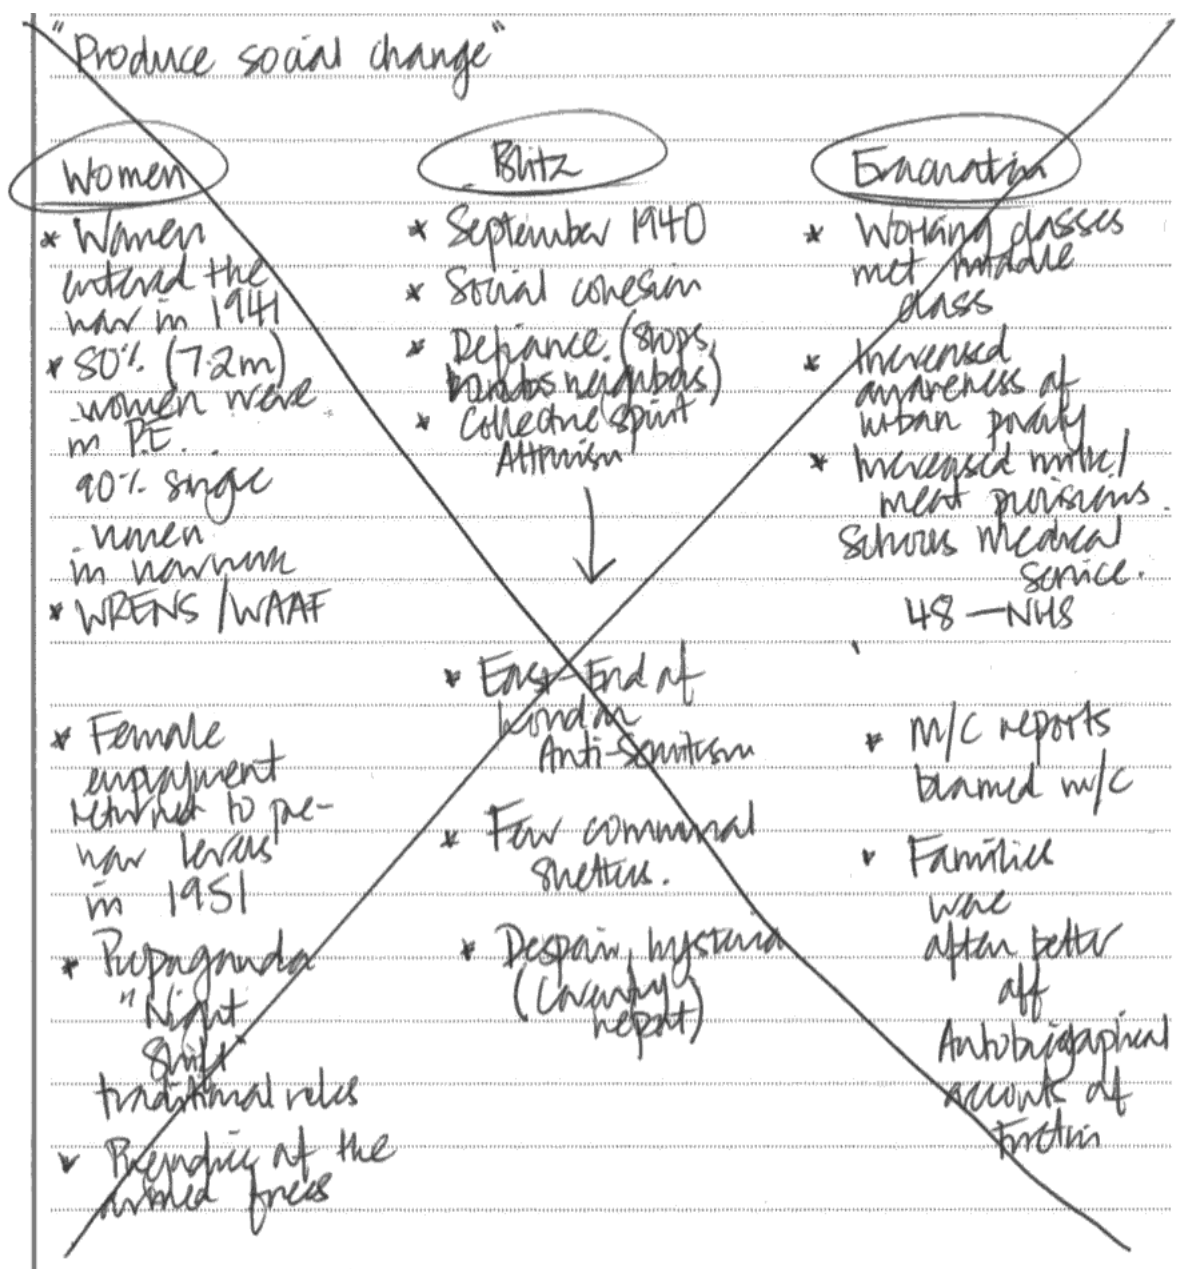 "Produce social change"
Women
* Women
entered the
war in 1941
* 80% (7.2m)
women were
in P.E.
90% single
women
in war work
* WRENS / WAAF
* Female
employment
returned to pre-
war levels
in 1951
* Propaganda
"Night
Shift"
traditional roles
* Prejudice of the
armed forces
Blitz
* September 1940
* Social cohesion
* Defiance (shops,
bombs neighbors)
* Collective spirit
Altruism
* East-End of
London
Anti-Semitism
* Few communal
shelters.
* Despair, hysteria
(Coventry
report)
Evacuation
* Working classes
met middle
class
* Increased
awareness of
urban poverty
* Increased milk/
meat provisions.
Schools Medical
service.
48 — NHS
* M/C reports
blamed w/c
* Families
were
often better
off
Autobiographical
accounts of